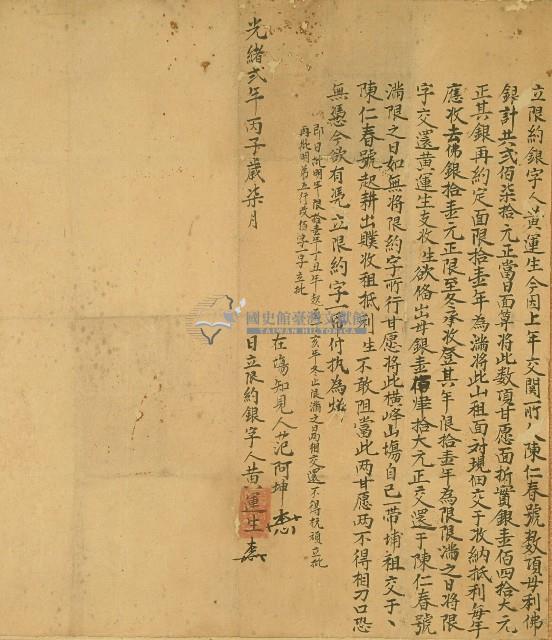 立限約銀字人黃運生今因上年交関所欠陳仁春號数項母利佛
銀計共弍佰柒拾元正當日面算將此数項甘愿面折實銀壹佰四拾大元
正其銀再約定面限拾壹年為滿將此山租面对現佃交于收納抵利每年
應收去佛銀拾壹元正限至冬承收登其年限拾壹年為限限滿之日將限
字交還黃運生支收生欲俻出母銀壹佰肆拾大元正交還于陳仁春號
滿限之日如無將限約字所行甘愿將此橫峰山塲自己一帶埔租交于
陳仁春號起耕出贌收租抵利生不敢阻當此两甘愿两不得相刀口恐
無憑今欲有憑立限約字一帋付执為炤
即日批明年限拾壹年丁丑年起亥年冬止限滿之日两相交還不得抗頑立批
再批明第五行改佰字一字立批
在塲知見人范阿坤
光緒弍年丙子歲柒月 日立限約銀字人黃運生
國史館臺灣文獻館
TAIWAN HISTORICA